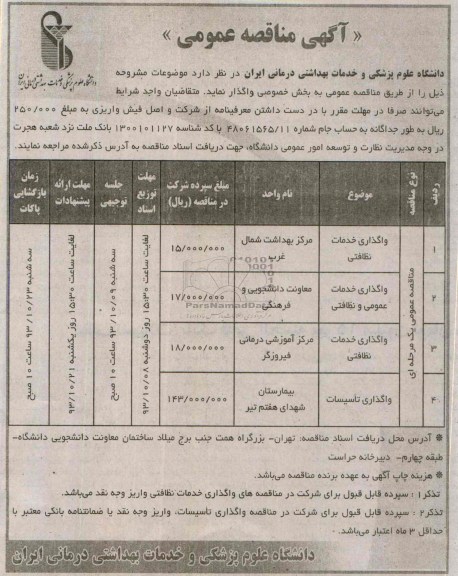 « آگهی مناقصه عمومی »
دانشگاه علوم پزشکی و خدمات بهداشتی درمانی ایران
دانشگاه علوم پزشکی و خدمات بهداشتی درمانی ایران در نظر دارد موضوعات مشروحه
ذیل را از طریق مناقصه عمومی به بخش خصوصی واگذار نماید. متقاضیان واجد شرایط
می‌توانند صرفا در مهلت مقرر با در دست داشتن معرفینامه از شرکت و اصل فیش واریزی به مبلغ ۲۵۰/۰۰۰
ریال به طور جداگانه به حساب جام شماره ۴۸۰۶۱۵۶۵/۱۱ با کد شناسه ۱۳۰۰۱۰۱۱۲۷ بانک ملت نزد شعبه هجرت
در وجه مدیریت نظارت و توسعه امور عمومی دانشگاه، جهت دریافت اسناد مناقصه به آدرس ذکرشده مراجعه نمایند.
ردیف
نوع مناقصه
موضوع
نام واحد
مبلغ سپرده شرکت در مناقصه (ریال)
مهلت توزیع اسناد
جلسه توجیهی
مهلت ارائه پیشنهادات
زمان بازگشایی پاکات
مناقصه عمومی یک مرحله ای
۱
واگذاری خدمات نظافتی
مرکز بهداشت شمال غرب
۱۵/۰۰۰/۰۰۰
۲
واگذاری خدمات عمومی و نظافتی
معاونت دانشجویی و فرهنگی
۱۷/۰۰۰/۰۰۰
۳
واگذاری خدمات نظافتی
مرکز آموزشی درمانی فیروزگر
۱۸/۰۰۰/۰۰۰
۴
واگذاری تأسیسات
بیمارستان شهدای هفتم تیر
۱۴۳/۰۰۰/۰۰۰
لغایت ساعت ۱۵:۳۰ روز دوشنبه ۹۳/۱۰/۰۸
سه شنبه ۹۳/۱۰/۰۹ ساعت ۱۰ صبح
لغایت ساعت ۱۵:۳۰ روز یکشنبه ۹۳/۱۰/۲۱
سه شنبه ۹۳/۱۰/۲۳ ساعت ۱۰ صبح
ParsNamadData
* آدرس محل دریافت اسناد مناقصه: تهران- بزرگراه همت جنب برج میلاد ساختمان معاونت دانشجویی دانشگاه-
طبقه چهارم- دبیرخانه حراست
* هزینه چاپ آگهی به عهده برنده مناقصه می‌باشد.
تذکر۱ : سپرده قابل قبول برای شرکت در مناقصه های واگذاری خدمات نظافتی واریز وجه نقد می‌باشد.
تذکر۲ : سپرده قابل قبول برای شرکت در مناقصه واگذاری تأسیسات، واریز وجه نقد یا ضمانتنامه بانکی معتبر با
حداقل ۳ ماه اعتبار می‌باشد.
دانشگاه علوم پزشکی و خدمات بهداشتی درمانی ایران